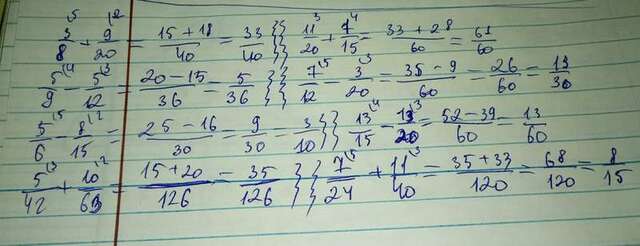 3/8⁽⁵ + 9/20⁽² = 15+18/40 = 33/40 } } 11/20⁽³ + 7/15⁽⁴ = 33+28/60 = 61/60
5/9⁽⁴ - 5/12⁽³ = 20-15/36 = 5/36 } } 7/12⁽⁵ - 3/20⁽³ = 35-9/60 = 26/60 = 13/30
5/6⁽⁵ - 8/15⁽² = 25-16/30 = 9/30 = 3/10 } } 13/15⁽⁴ - 13/20⁽³ = 52-39/60 = 13/60
5/42⁽³ + 10/63⁽² = 15+20/126 = 35/126 } } 7/24⁽⁵ + 11/40⁽³ = 35+33/120 = 68/120 = 8/15